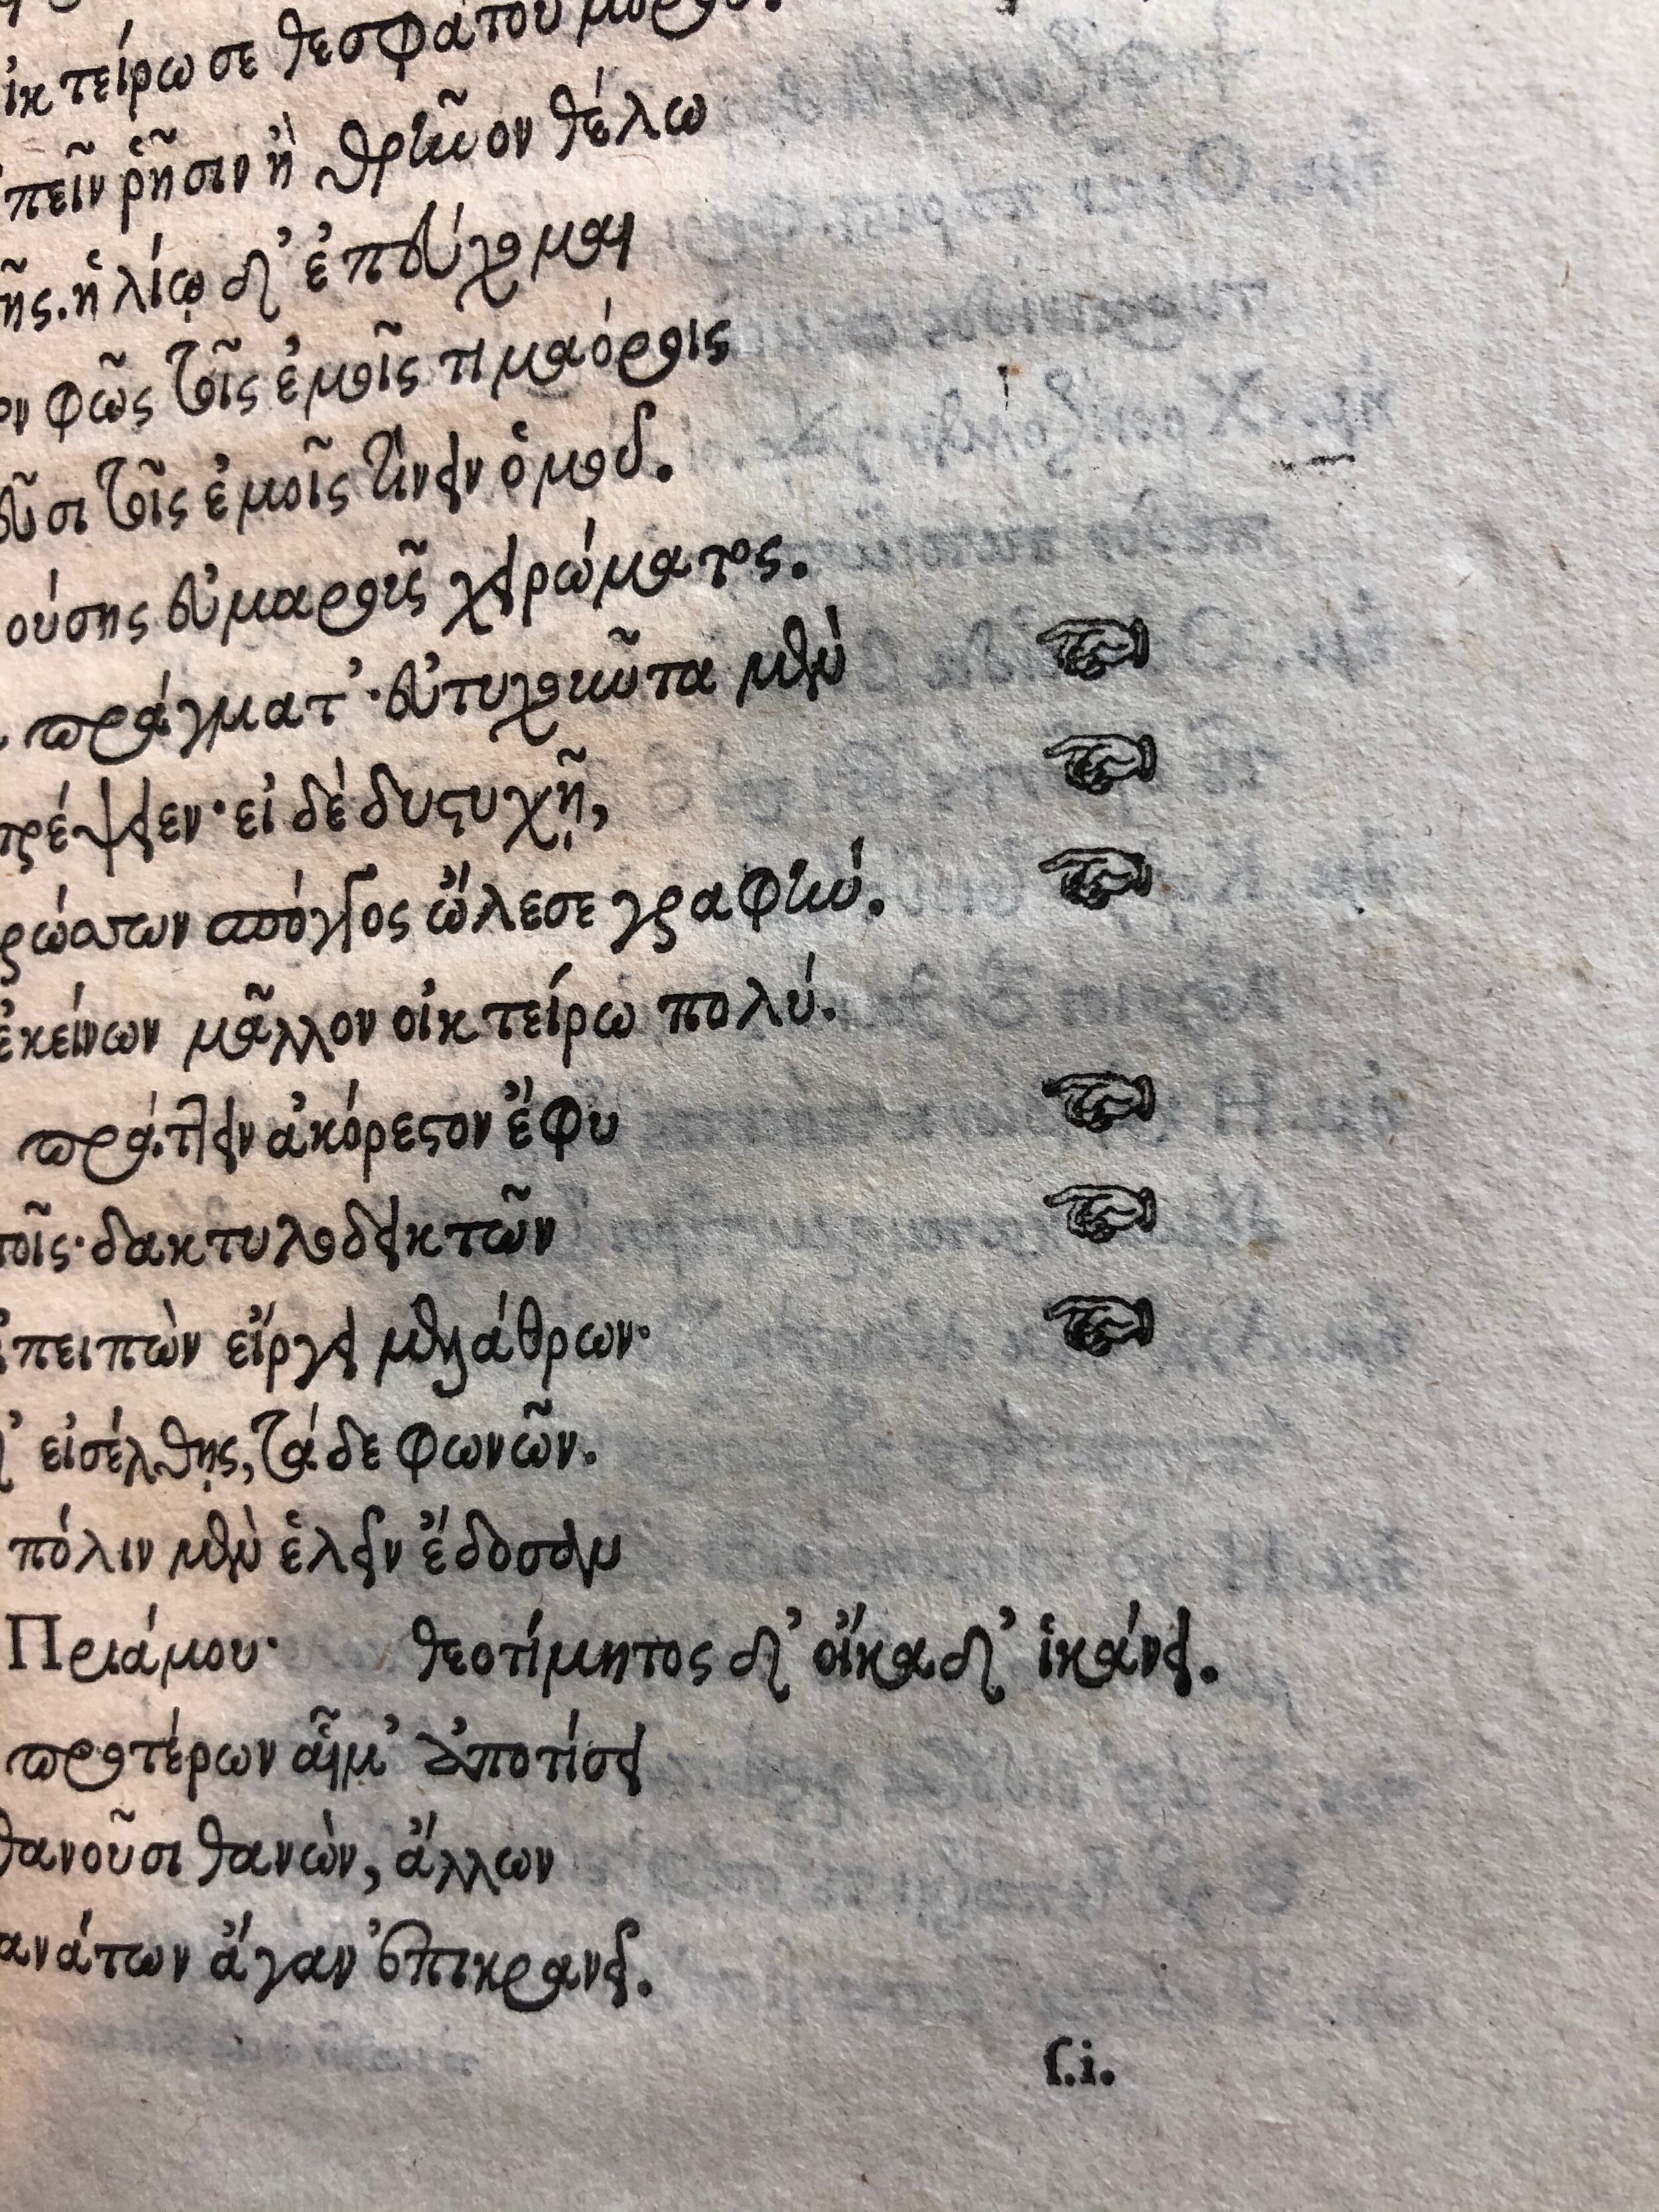 ἰκτείρω σε θεσφάτου μόρου.
πεῖν ῥῆσιν ἢ θρῆνον θέλω
ῆς. ἡλίῳ δ' ἐπεύχομαι
ον φῶς τοῖς ἐμοῖς τιμαόροις
εῦσι τοῖς ἐμοῖς τίνειν ὁμοῦ.
ούσης εὐμαροῦς χειρώματος.
πράγματ'· εὐτυχοῦντα μὲν
τρέψειεν· εἰ δὲ δυστυχῇ,
ρώσσων σπόγγος ὤλεσε γραφήν.
ἐκείνων μᾶλλον οἰκτείρω πολύ.
πράττειν ἀκόρεστον ἔφυ
τοῖς· δακτυλοδεικτῶν
πειπὼν εἴργει μελάθρων·
εἰσέλθῃς, τάδε φωνῶν.
πόλιν μὲν ἑλεῖν ἔδοσαν
Πριάμου· θεοτίμητος δ' οἴκαδ' ἱκάνει.
προτέρων αἷμ' ἀποτίσει
θανοῦσι θανὼν, ἄλλων
ανάτων ἄγαν ἐπικρανεῖ.
ſ.i.